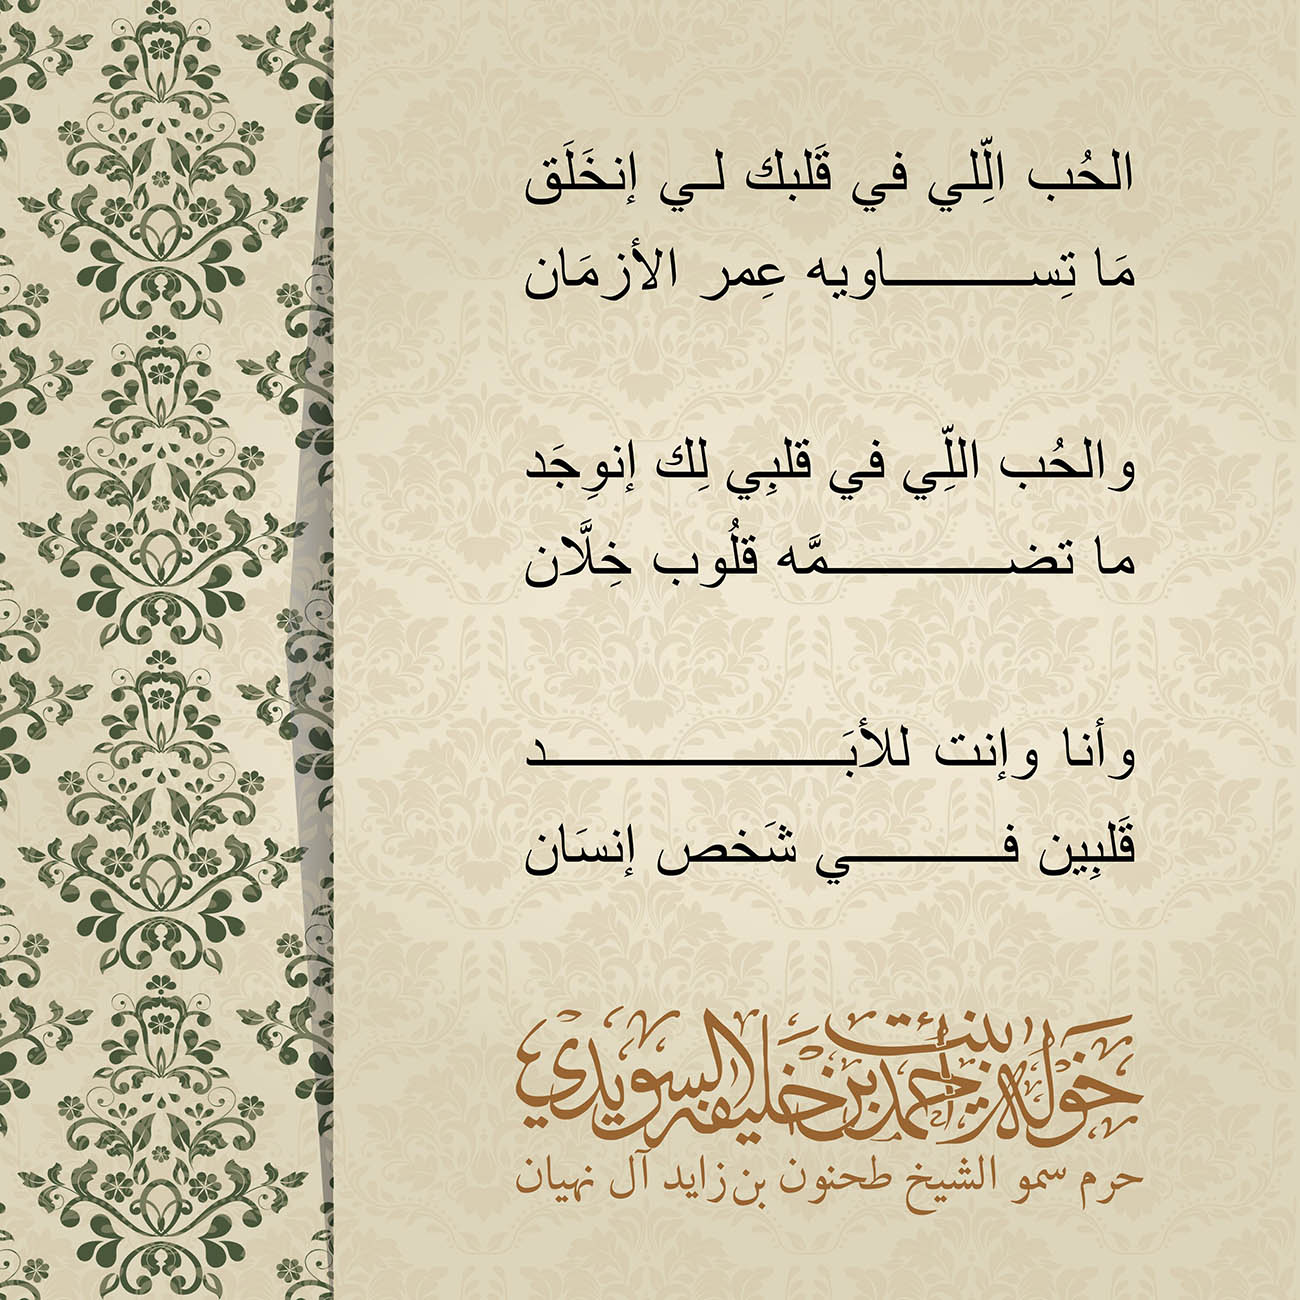 الحُب الِّلي في قَلبك لـي إنخَلَق
مَا تِســـــــاويه عِمر الأزمَان
والحُب اللِّي في قلبِي لِك إنوِجَد
ما تضـــــــــمَّه قلُوب خِلَّان
وأنا وإنت للأبَـــــــــــــــد
قَلبِين فـــــــــي شَخص إنسَان
خولة بنت أحمد بن خليفة السويدي
حرم سمو الشيخ طحنون بن زايد آل نهيان